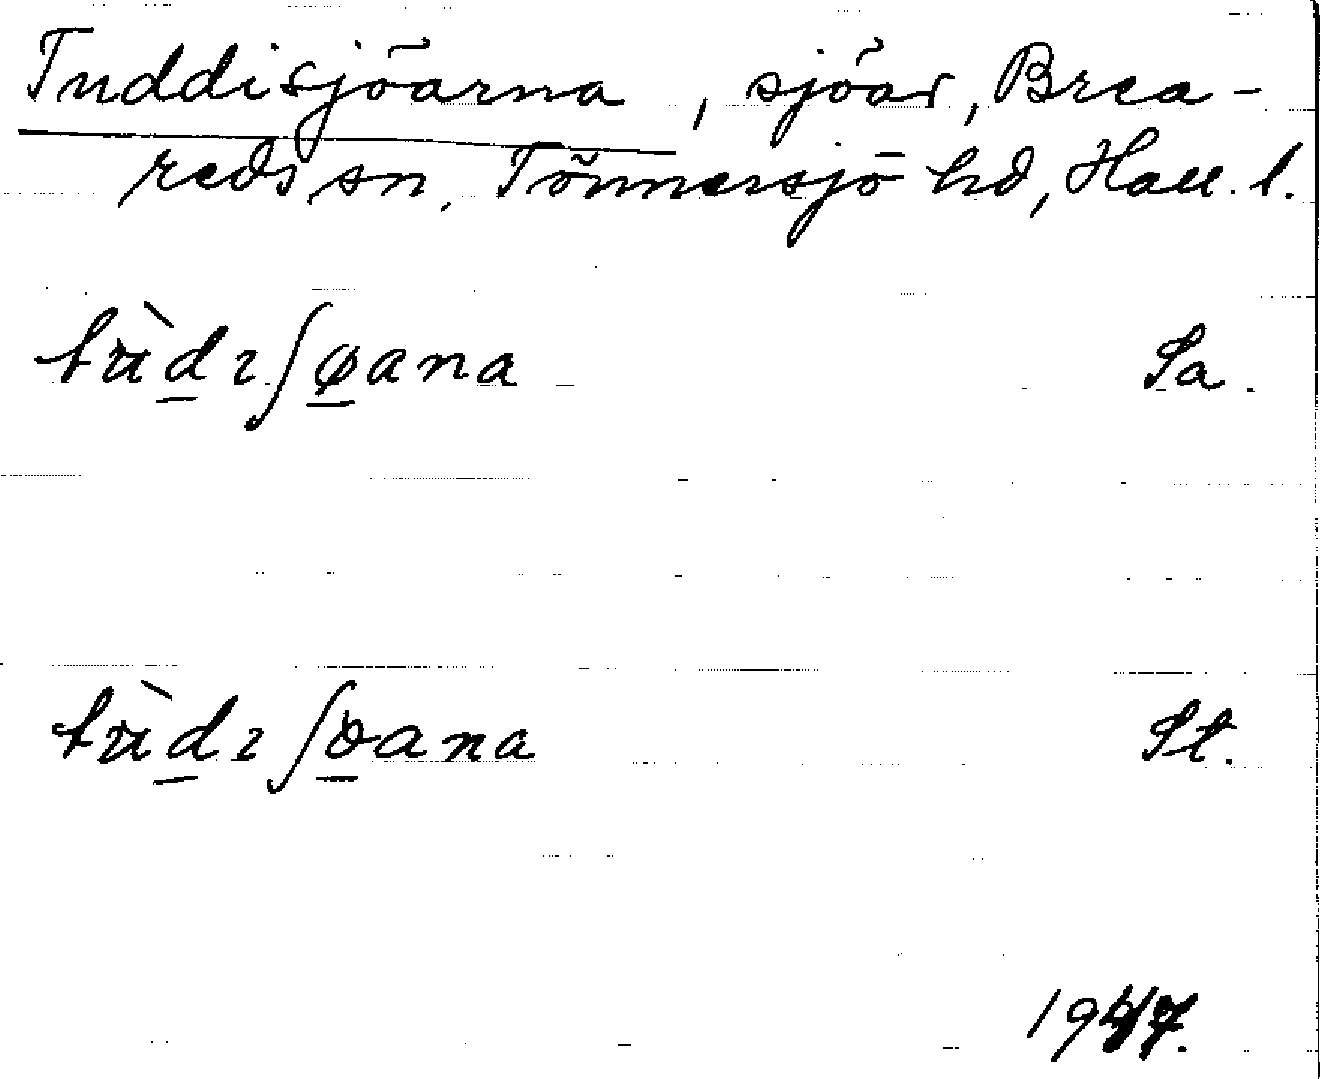 Tuddisjöarna, sjöar, Brea-
reds sn, Tönnersjö hd, Hall. l.
tùdıʃφana Sa.
tùdıʃꝺana St.
1947.